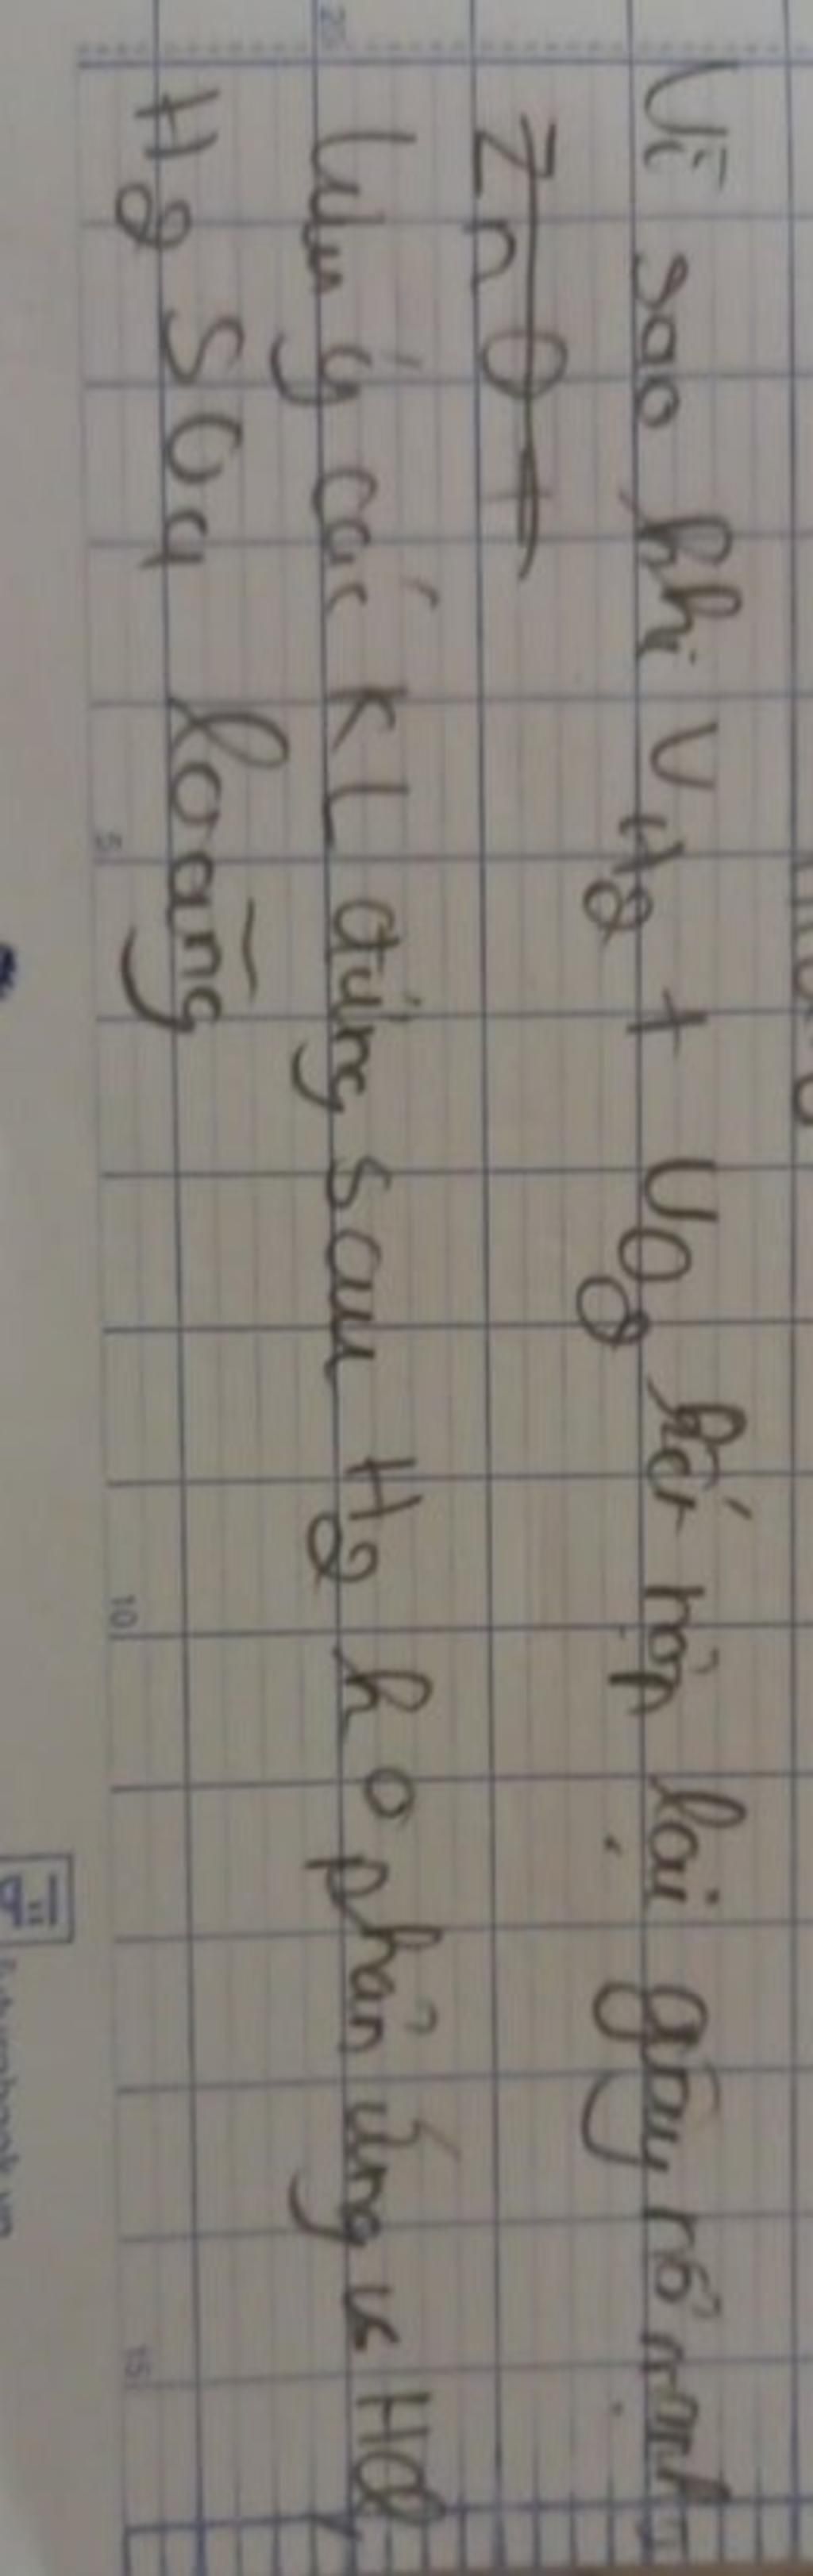 Vì sao khi V H2 + V O2 kết hợp lại gây nổ mạnh
ZnO +
Lưu ý các KL đứng sau H2 ko phản ứng vs HCl,
H2SO4 loãng
5
10
15